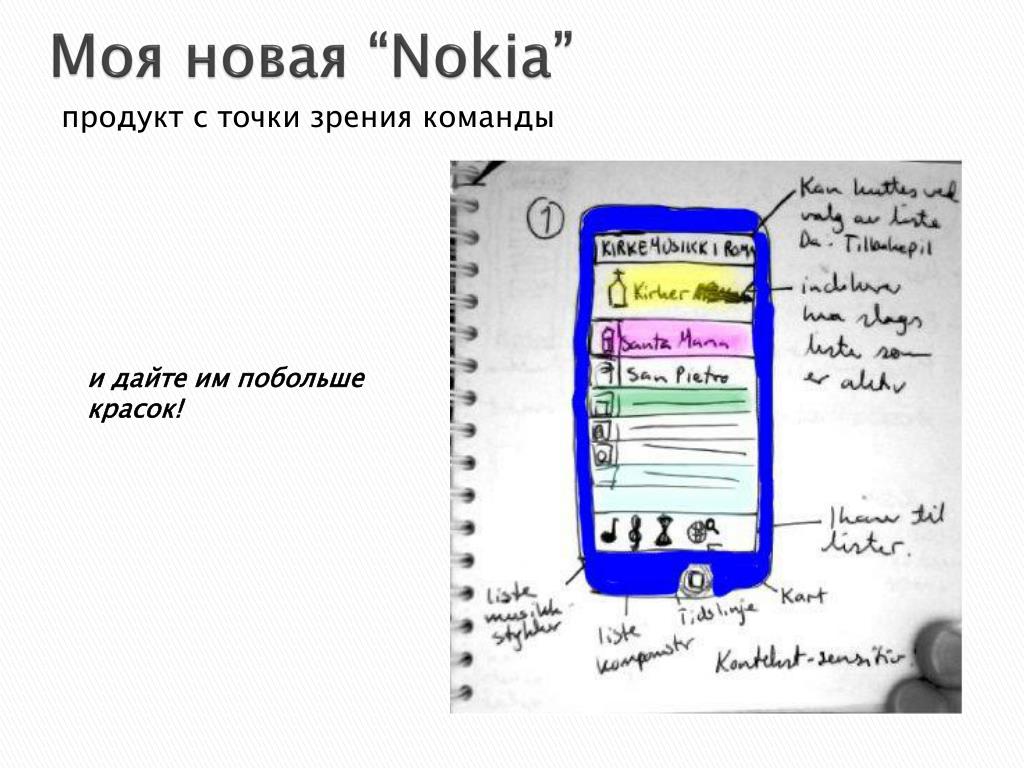 Моя новая “Nokia”
продукт с точки зрения команды
и дайте им побольше
красок!
1
KIRKEMUSIKK I ROMA
Kirker
Santa Maria
San Pietro
Kan byttes ved
valg av liste
Da: Tilbakepil
hva slags
liste som
er aktiv
til
lister.
liste
musikk-
stykker
liste
komponistr
Tidslinje
Kart
Kontekst-sensitiv.